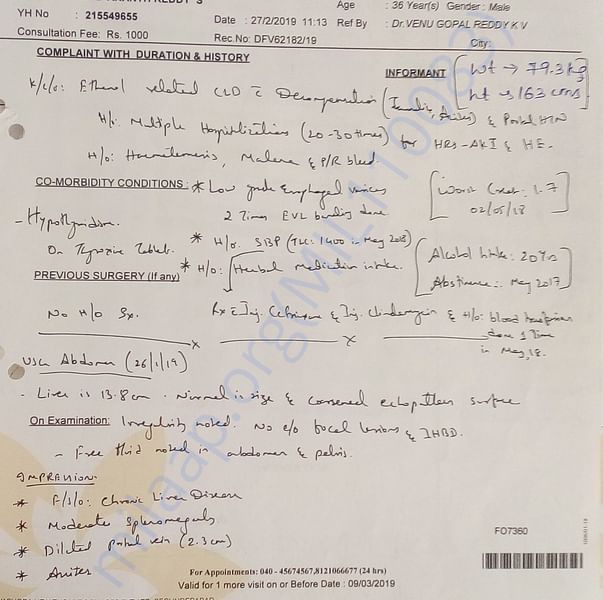 Age : 36 Year(s) Gender : Male
YH No : 215549655
Date : 27/2/2019 11:13 Ref By : Dr.VENU GOPAL REDDY K V
Consultation Fee: Rs. 1000
Rec.No: DFV62182/19
City:
COMPLAINT WITH DURATION & HISTORY
INFORMANT
Wt → 79.3 kg
ht → 163 cms
K/c/o: Ethanol related CLD c Decompensation (Jaundice, Ascites) & Portal HTN
H/o: Multiple Hospitalizations (20-30 times) for HRS-AKI & HE.
H/o: Haematemesis, Malena & P/R bleed.
CO-MORBIDITY CONDITIONS : * Low grade Esophageal varices
Worst Creat: 1.7
02/05/18
2 Times EVL banding done.
- Hypothyroidism.
On Thyroxine Tablets.
* H/o: SBP (TLC: 1400 in May 2018)
* H/o: Herbal Medication intake.
Alcohol Intake: 20 Yrs
Abstinence: May 2017
PREVIOUS SURGERY (If any)
No H/o Sx.
Rx c Inj. Ceftriaxone & Inj. Clindamycin & H/o: blood transfusion
done 1 Time
in May,18.
USG Abdomen (26/1/19)
- Liver is 13.8cm. Normal in size & coarsened echopattern surface
On Examination: Irregularity noted. No e/o focal lesions & IHBD.
- Free fluid noted in abdomen & pelvis.
IMPRESSION:
* F/s/o: Chronic Liver Disease
* Moderate Splenomegaly
* Dilated portal vein (2.3cm)
* Ascites
FO7360
For Appointments: 040 - 45674567,8121066677 (24 hrs)
Valid for 1 more visit on or Before Date : 09/03/2019
milaap.org(MIL1110083)